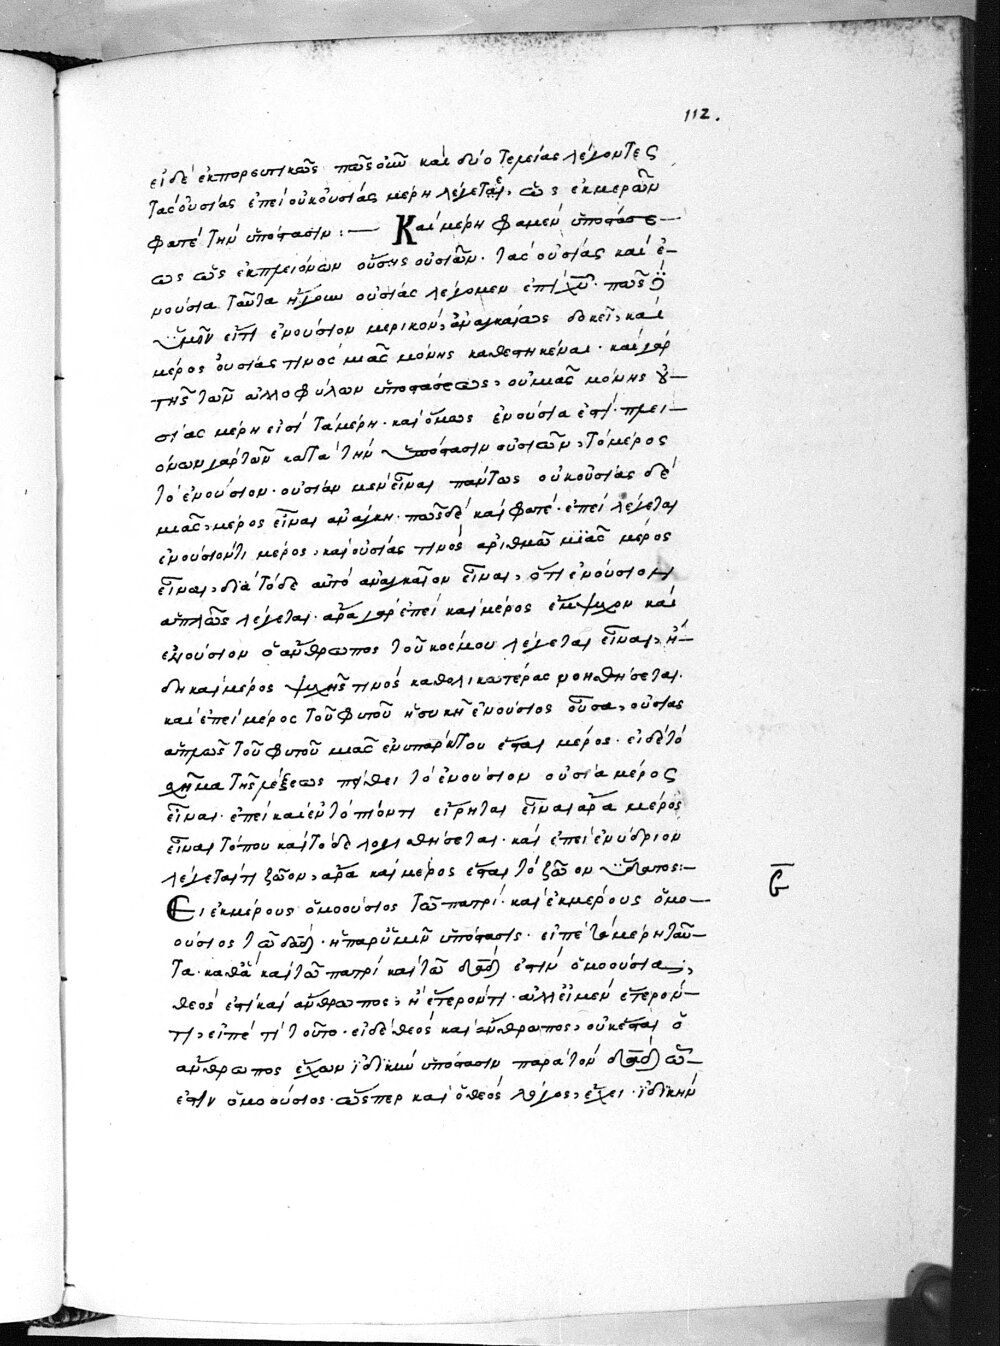 112.
εἰ δὲ ἐκπορευτικῶς πῶς οὖν καὶ δύο τελείας λέγοντες
τὰς οὐσίας ἐπεὶ οὐκ οὐσίας μέρη λέγεται, ὡς ἐκ μερῶν
φατὲ τὴν ὑπόστασιν :— Καὶ μέρη φαμὲν ὑποστάσε—
ως ὡς ἐκ πλειόνων οὔσης οὐσιῶν. τὰς οὐσίας καὶ ἐ—
νούσια ταῦτα ἤγουν οὐσίας λέγομεν ἐπὶ χῦ. πῶς
ὑμῖν εἴ τι ἐνούσιον μερικὸν, ἀναγκαίως δοκεῖ, καὶ
μέρος οὐσίας τινὸς μιᾶς μόνης καθεστηκέναι. καὶ γὰρ
τῆς τῶν ἀλλοφύλων ὑποστάσεως, οὐ μιᾶς μόνης οὐ—
σίας μέρη εἰσὶ τὰ μέρη. καὶ ὅμως ἐνούσια ἐστί. πλει—
όνων γὰρ τῶν κατὰ τὴν ὑπόστασιν οὐσιῶν, τὸ μέρος
τὸ ἐνούσιον. οὐσίαν μὲν εἶναι πάντως οὐκ οὐσίας δὲ
μιᾶς, μέρος εἶναι ἀνάγκη. πῶς δὲ καὶ φατέ. ἐπεὶ λέγεται
ἐνούσιόν τι μέρος, καὶ οὐσίας τινὸς ἀριθμῷ μιᾶς μέρος
εἶναι, διὰ τόδε αὐτὸ ἀναγκαῖον εἶναι, ὅτι ἐνούσιον
ἁπλῶς λέγεται. ἆρα γὰρ ἐπεὶ καὶ μέρος ἔμψυχον καὶ
ἐνούσιον ὁ ἄνθρωπος τοῦ κόσμου λέγεται εἶναι, ἤ—
δη καὶ μέρος ψυχῆς τινὸς καθολικωτέρας νοηθήσεται.
καὶ ἐπεὶ μέρος τοῦ φυτοῦ ἡ συκῆ ἐνούσιος οὖσα, οὐσίας
ἁπλῶς τοῦ φυτοῦ μιᾶς ἐνυπάρκτου ἔσται μέρος. εἰ δὲ τὸ
σχῆμα τῆς λέξεως πείθει τὸ ἐνούσιον οὐσία μέρος
εἶναι. ἐπεὶ καὶ ἐν τόπῳ ὄν τι εἴρηται εἶναι ἆρα μέρος
εἶναι τόπου καὶ τόδε λογισθήσεται. καὶ ἐπεὶ ἐνύδριον
λέγεταί τι ζῶον, ἆρα καὶ μέρος ἔσται τὸ ζῶον ὕδατος:—
Εἰ ἐκ μέρους ὁμοούσιος τῷ πατρὶ. καὶ ἐκ μέρους ὁμο—
ούσιος τῷ δαδ. ἡ παρ' ὑμῖν ὑπόστασις. εἰπὲ τὰ μέρη ταῦ—
τα. καθ' ἃ καὶ τῷ πατρὶ καὶ τῷ δαδ ἐστὶν ὁμοούσια,
θεὸς ἐστὶ καὶ ἄνθρωπος, ἢ ἕτερόν τι. ἀλλ' εἰ μὲν ἕτερόν—
τι, εἰπὲ τί τοῦτο. εἰ δὲ θεὸς καὶ ἄνθρωπος, οὐκ ἔσται ὁ
ἄνθρωπος ἔχων ἰδικὴν ὑπόστασιν παρὰ τὸν δαδ ᾧ—
ἐστὶν ὁμοούσιος. ὥσπερ καὶ ὁ θεὸς λόγος, ἔχει ἰδικὴν